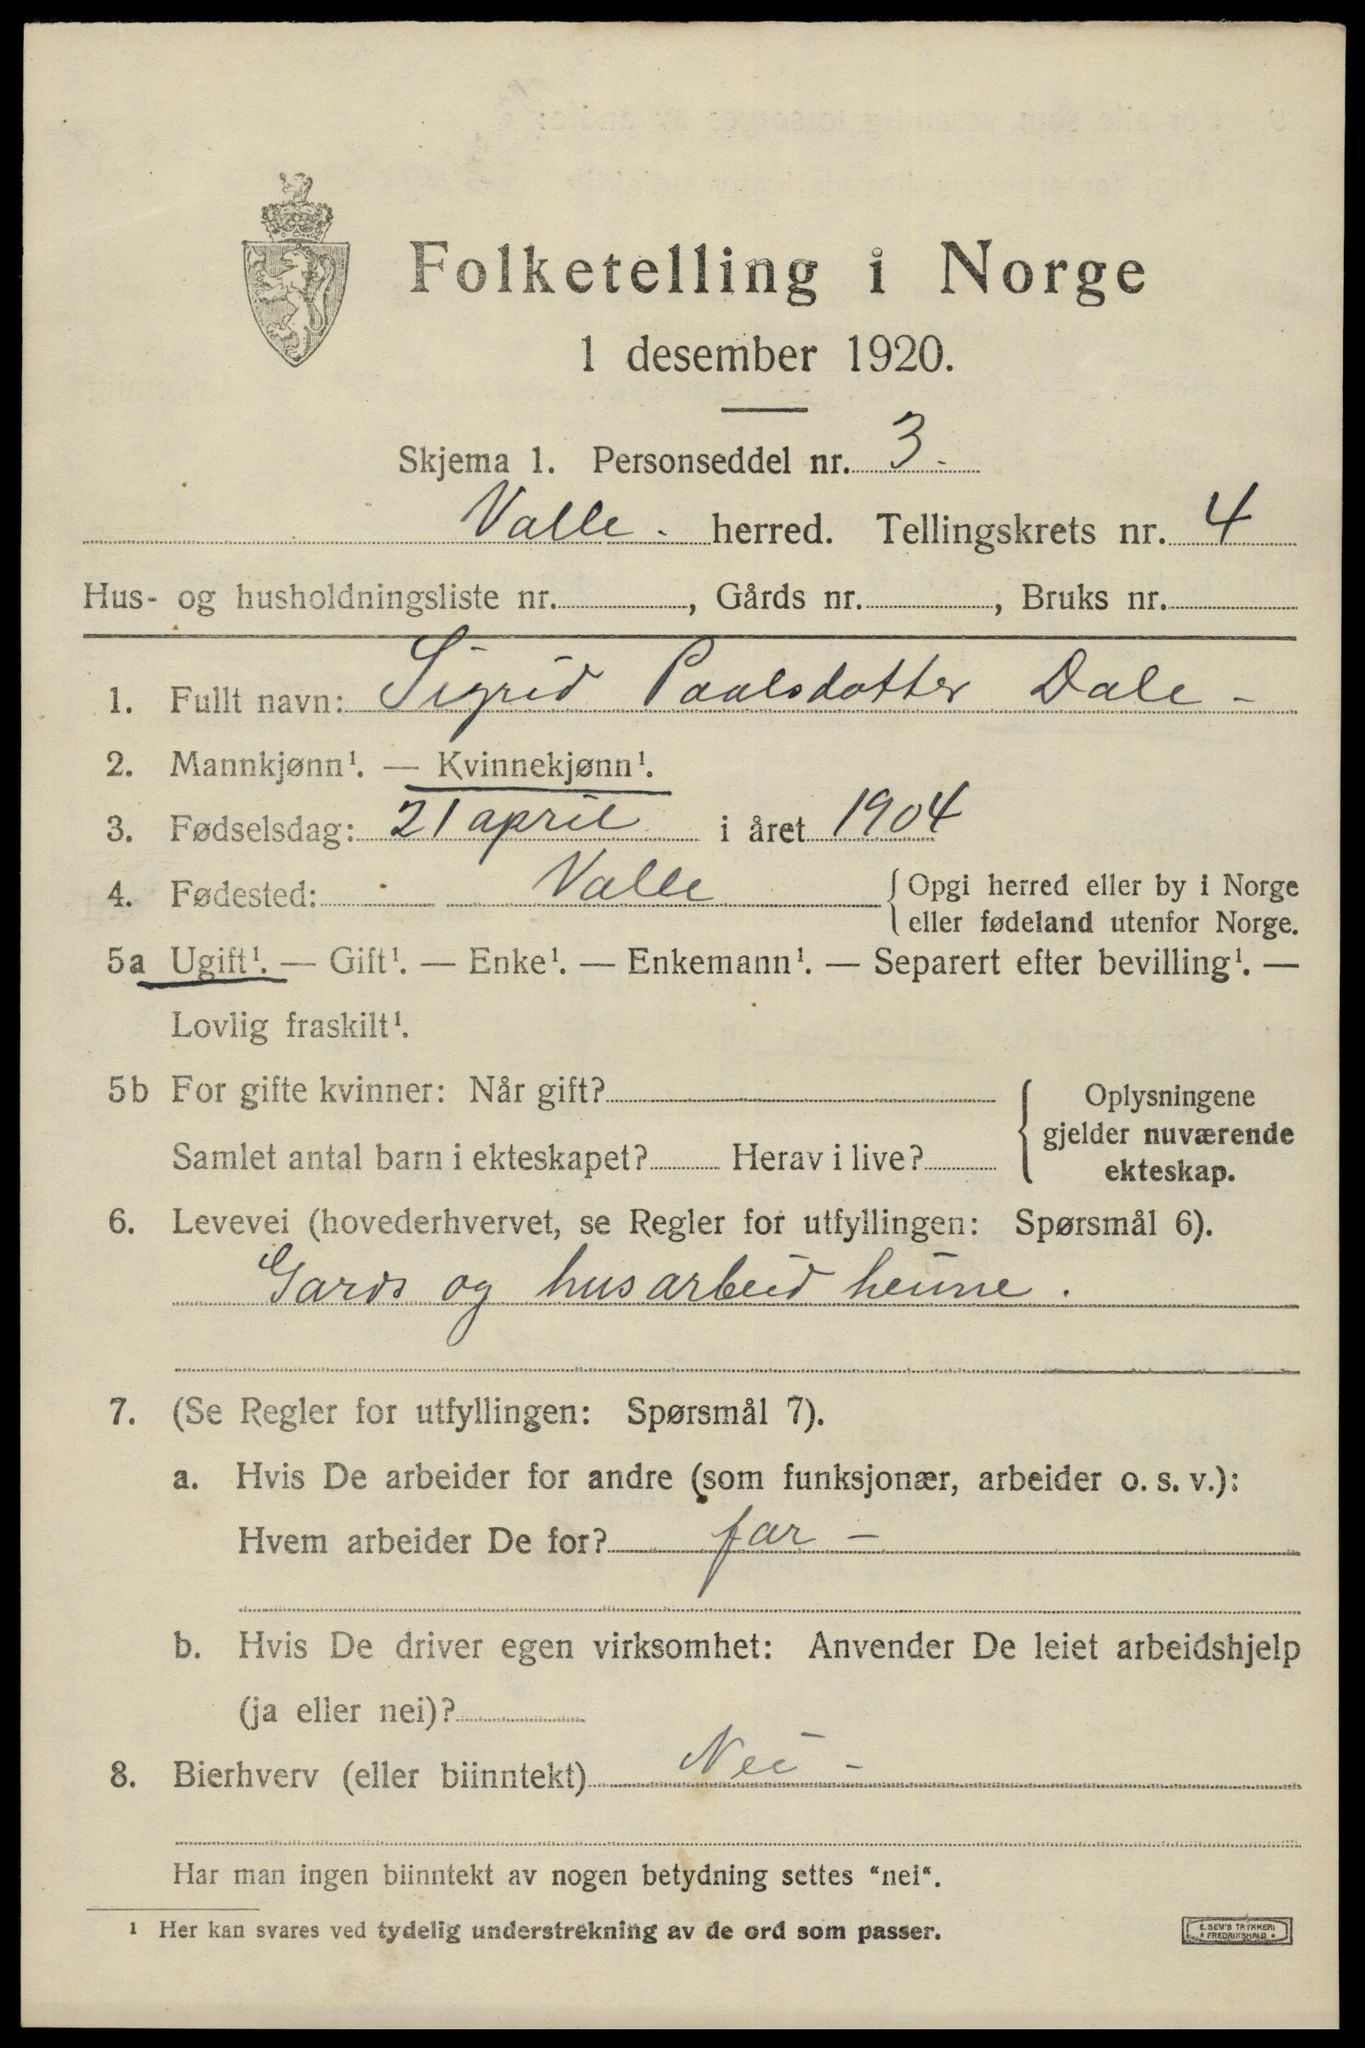 Folketelling i Norge
1 desember 1920.
Skjema 1. Personseddel nr. 3.
Valle. herred. Tellingskrets nr. 4
Hus- og husholdningsliste nr. , Gårds nr. , Bruks nr.
1. Fullt navn: Sigrid Paalsdotter Dale -
2. Mannkjønn¹. — Kvinnekjønn¹.
3. Fødselsdag: 21 april i året 1904
4. Fødested: Valle {Opgi herred eller by i Norge
eller fødeland utenfor Norge.
5a Ugift¹. — Gift¹. — Enke¹. — Enkemann¹. — Separert efter bevilling¹. —
Lovlig fraskilt¹.
5b For gifte kvinner: Når gift?
Samlet antal barn i ekteskapet? Herav i live?
Oplysningene
gjelder nuværende
ekteskap.
6. Levevei (hovederhvervet, se Regler for utfyllingen: Spørsmål 6).
Gards og husarbeid heime.
7. (Se Regler for utfyllingen: Spørsmål 7).
a. Hvis De arbeider for andre (som funksjonær, arbeider o. s. v.):
Hvem arbeider De for? far -
b. Hvis De driver egen virksomhet: Anvender De leiet arbeidshjelp
(ja eller nei)?
8. Bierhverv (eller biinntekt) Nei -
Har man ingen biinntekt av nogen betydning settes "nei".
¹ Her kan svares ved tydelig understrekning av de ord som passer.
E. SEM'S TRYKKERI
FREDRIKSHALD